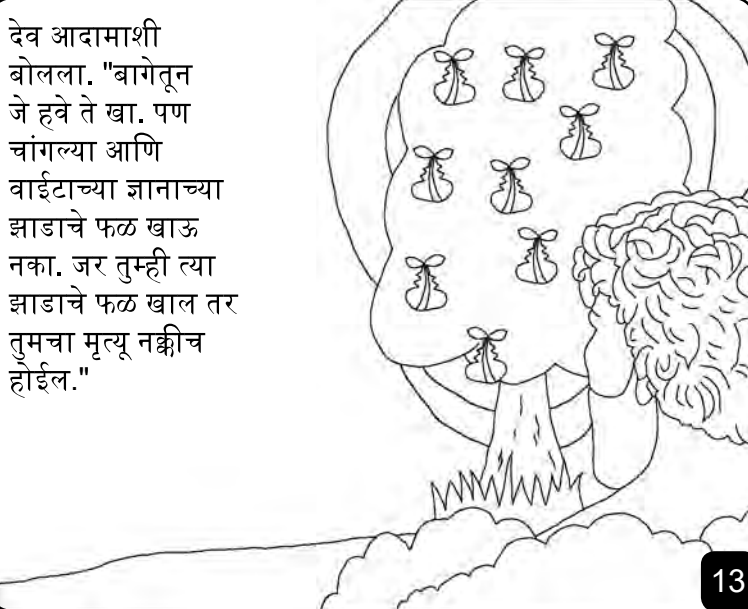 देव आदामाशी
बोलला. "बागेतून
जे हवे ते खा. पण
चांगल्या आणि
वाईटाच्या ज्ञानाच्या
झाडाचे फळ खाऊ
नका. जर तुम्ही त्या
झाडाचे फळ खाल तर
तुमचा मृत्यू नक्कीच
होईल."
13